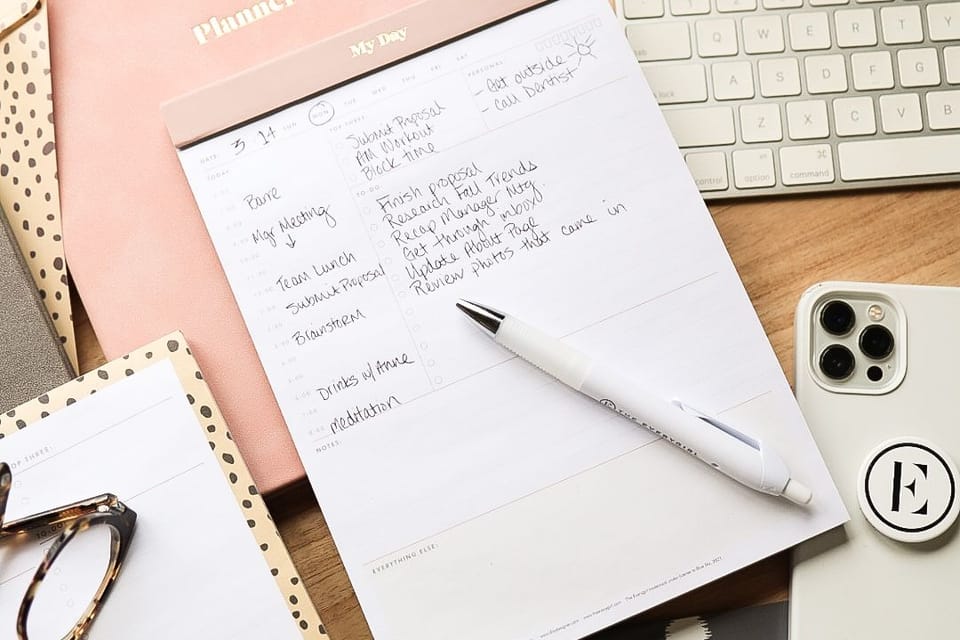 Planner
My Day
DATE: 3 14 SUN MON TUE WED THU FRI SAT
TODAY
Barre
Mgr Meeting
↓
Team Lunch
Submit Proposal
Brainstorm
Drinks w/ Anne
meditation
TOP THREE
Submit Proposal
AM Workout
Block time
PERSONAL
- Get outside
- Call Dentist
TO-DO
Finish proposal
Research Fall Trends
Recap Manager Mtg.
Get through inbox
Update About Page
Review photos that came in
NOTES:
EVERYTHING ELSE:
TOP THREE:
tab
Q W E R T Y
A S D F G
Z X C V B
control option command
⌘
E